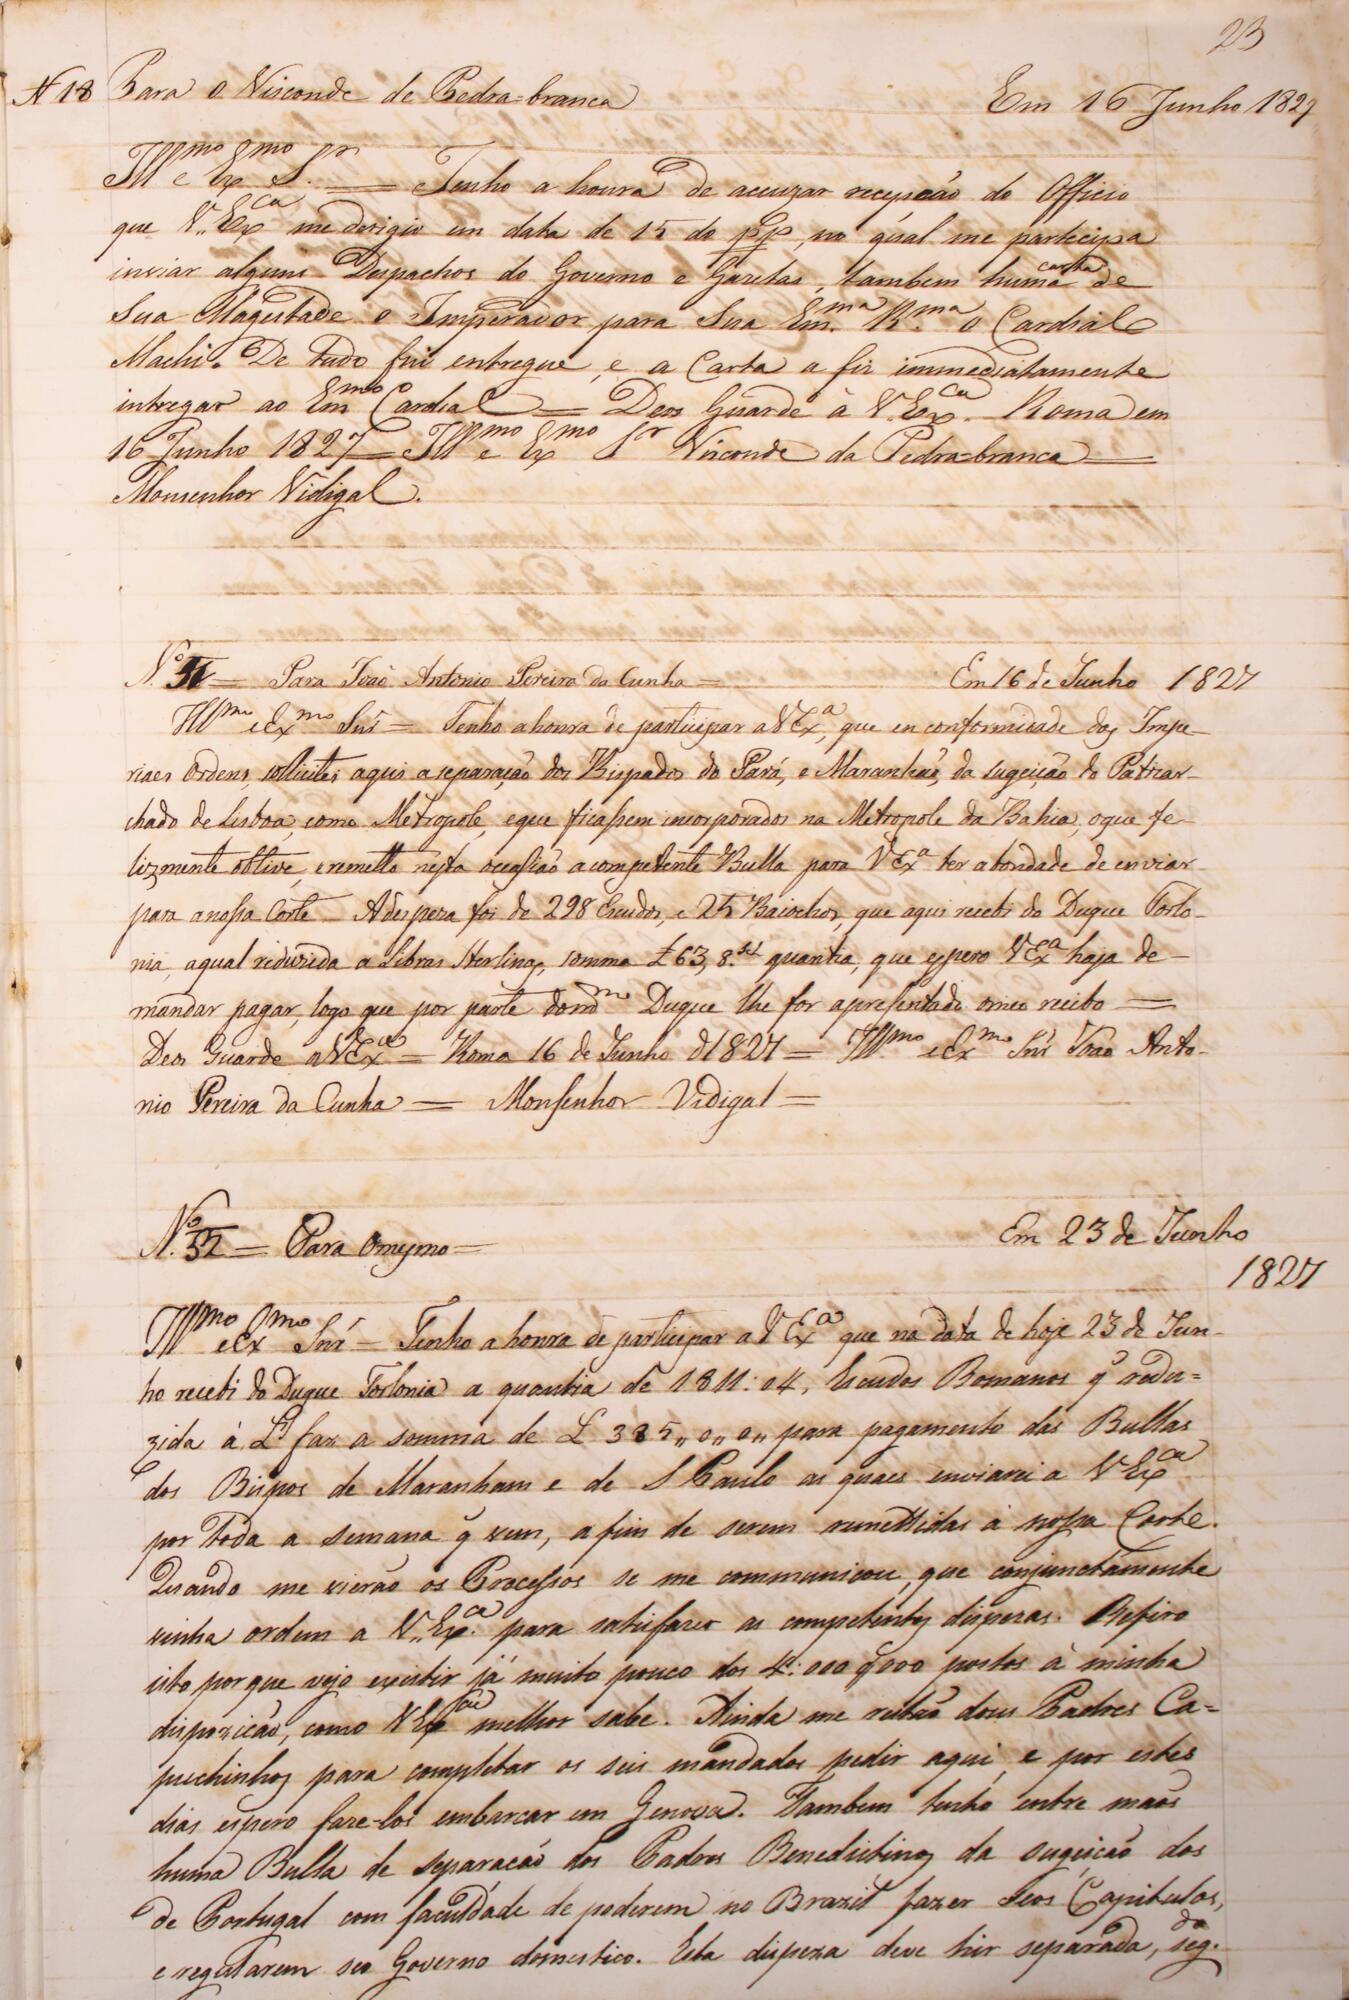 23
N 18 Para o Visconde de Pedra=branca Em 16 Junho 1827
Illmo e Exmo Sr. — Tenho a honra de accuzar recepção do Officio
que V. Exca me derigio em data de 15 do pp, no qúal me participa
inviar alguns Despachos do Governo e Gazetas, tambem huma carta de
Sua Magestade o Imperador para Sua Em.ma R.ma o Cardial
Machi. De tudo fui entregue, e a Carta a fiz immediatamente
intregar ao Emmo Cardial = Deos Guarde à V. Exca. Roma em
16 Junho 1827 = Illmo e Exmo Sr Visconde da Pedra=branca =
Monsenhor Vidigal.
N.o 51 = Para João Antonio Pereira da Cunha = Em 16 de Junho 1827
Illmo e Exmo Snr = Tenho a honra de participar a V Exa, que en conformidade das Impe-
riaes Ordens, sollicitei aqui a separação dos Bispados do Pará, e Maranhão, da sugeição do Patriar-
chado de Lisboa, como Metropole, e que ficassem incorporados na Metropole da Bahia, o que fe-
lizmente obtive, e remetto nesta occasião a competente Bulla para V Exa ter a bondade de enviar
para a nossa Corte - A despeza foi de 298 Escudos, e 25 Baiochos, que aqui recebi do Duque Torlo-
nia, a qual reduzida a Libras Sterlinas, somma £63, 8. quantia, que espero V Exa haja de
mandar pagar, logo que por parte do mmo Duque lhe for apresentado o meo recibo =
Deos Guarde a V Exa = Roma 16 de Junho d 1827 = Illmo e Exmo Snr João Anto-
nio Pereira da Cunha = Monsenhor Vidigal =
N.o 52 = Para Omesmo = Em 23 de Junho
1827
Illmo e Exmo Snr = Tenho a honra de participar a V Exa que na data de hoje 23 de Jun-
ho recebi do Duque Torlonia a quantia de 1811:04, Escudos Romanos q̃ redu=
zida á Ls faz a somma de £ 385,,0,,0,, para pagamento das Bullas
dos Bispos de Maranham e de S Paulo as quaes enviarei a V Exca
por toda a semana q̃ vem, a fim de serem remettidas á nossa Corte.
Quando me vierão os Processos se me communicou, que conjunctamente
vinha ordem a V. Exca. para satisfazer as competentes dispezas. Refiro
isto porque vejo existir já muito pouco dos 4:000$000 postos à minha
dispozição, como V Exca melhor sabe. Ainda me restão dous Padres Ca=
puchinhos para completar os seis mandados pedir aqui, e por estes
dias espero faze-los embarcar em Genova. Tambem tenho entre mãos
huma Bulla de separacão dos Padres Benedictinos da sugeição dos
de Portugal com faculdade de poderem no Brazil fazer seos Capitulos,
e regularem seo Governo domestico. Esta dispeza deve hir separada, segdo